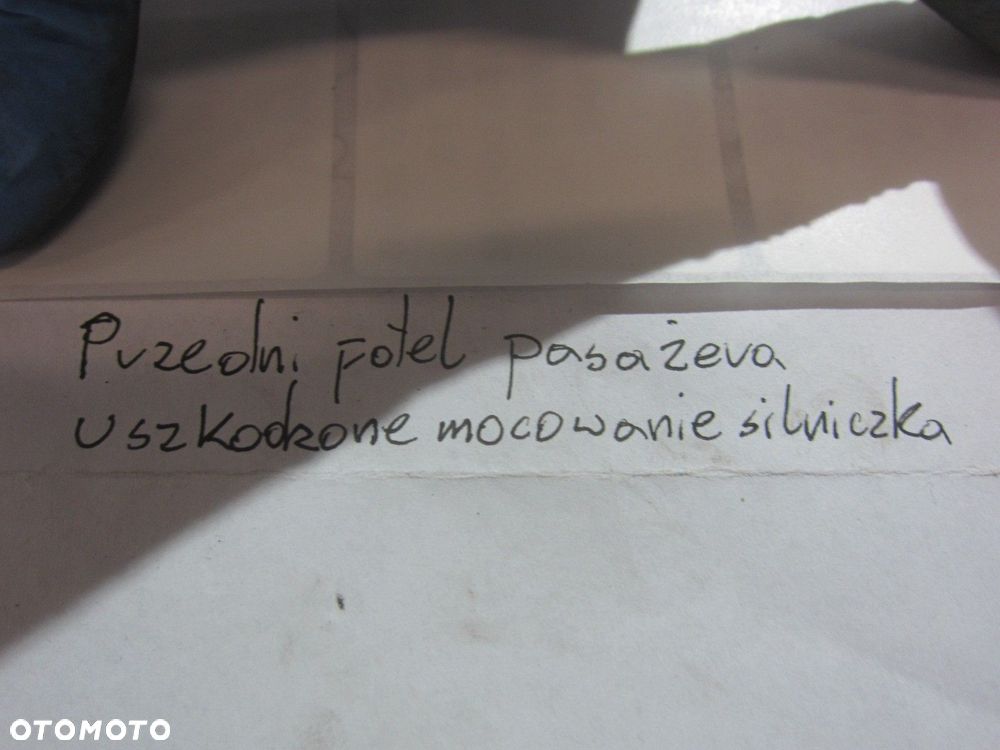 Przedni Fotel pasażera
uszkodzone mocowanie silniczka
OTOMOTO